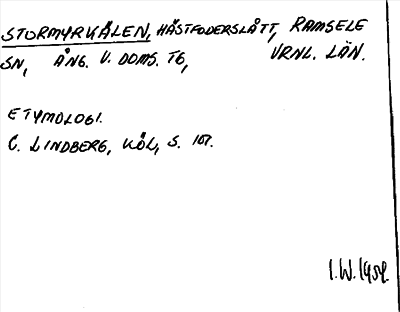 STORMYRKÅLEN, HÄSTFODERSLÅTT, RAMSELE
SN, ÅNG. V. DOMS. TG, VRNL. LÄN.
ETYMOLOGI.
C. LINDBERG, KÖL, S. 107.
I.W.